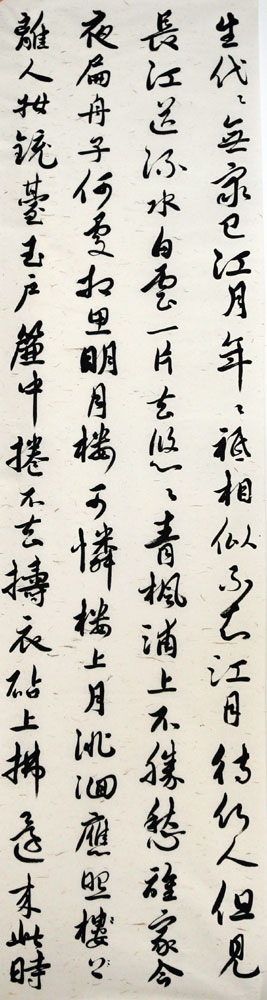 生代〻無窮已江月年〻祗相似不知江月待何人但見
長江送流水白雲一片去悠〻青楓浦上不勝愁誰家今
夜扁舟子何處相思明月楼可憐楼上月徘徊應照樓
離人妝鏡臺玉戶簾中捲不去擣衣砧上拂還來此時